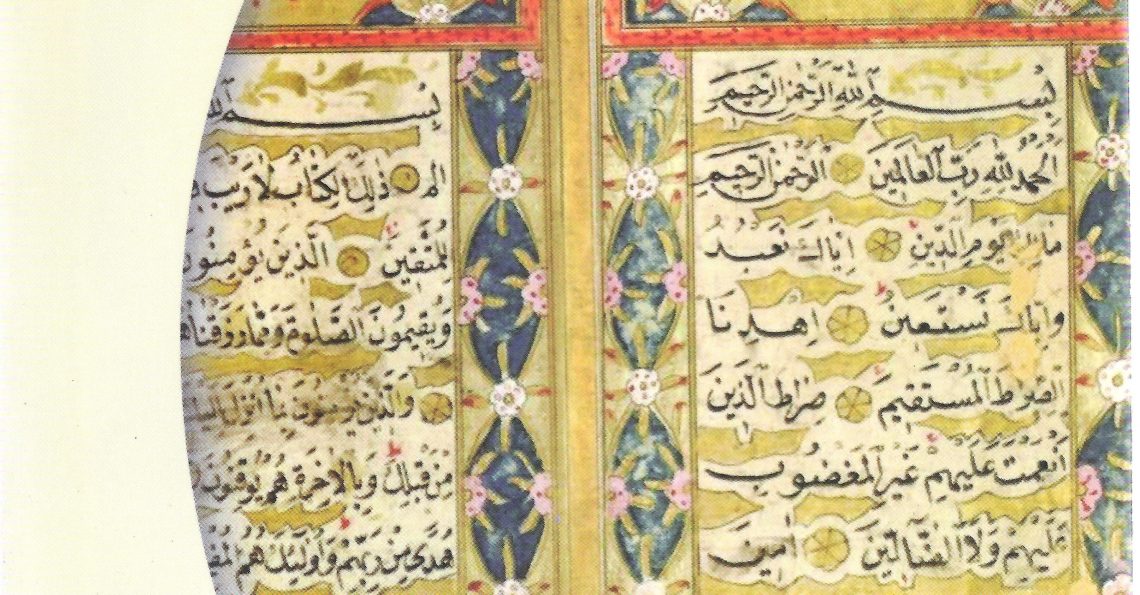 بِسْمِ اللّٰهِ الرَّحْمٰنِ الرَّحِيمِ
اَلْحَمْدُ لِلّٰهِ رَبِّ الْعَالَمِينَ الرَّحْمٰنِ الرَّحِيمِ
مَالِكِ يَوْمِ الدِّينِ اِيَّاكَ نَعْبُدُ
وَاِيَّاكَ نَسْتَعِينُ اِهْدِنَا
الصِّرَاطَ الْمُسْتَقِيمَ صِرَاطَ الَّذِينَ
اَنْعَمْتَ عَلَيْهِمْ غَيْرِ الْمَغْضُوبِ
عَلَيْهِمْ وَلَا الضَّالِّينَ اٰمِينَ
بِسْمِ
الم ذٰلِكَ الْكِتَابُ لَا رَيْبَ
لِلْمُتَّقِينَ الَّذِينَ يُؤْمِنُونَ
وَيُقِيمُونَ الصَّلٰوةَ وَمِمَّا رَزَقْنَا
وَالَّذِينَ يُؤْمِنُونَ بِمَا اُنْزِلَ
مِنْ قَبْلِكَ وَبِالْاٰخِرَةِ هُمْ يُوقِنُونَ
هُدًى مِنْ رَبِّهِمْ وَاُولٰئِكَ هُمُ